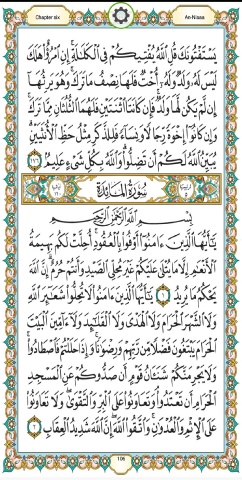 Chapter six An-Nisaa
يَسْتَفْتُونَكَ قُلِ ٱللَّهُ يُفْتِيكُمْ فِى ٱلْكَلَـٰلَةِ ۚ إِنِ ٱمْرُؤٌا۟ هَلَكَ
لَيْسَ لَهُۥ وَلَدٌ وَلَهُۥٓ أُخْتٌ فَلَهَا نِصْفُ مَا تَرَكَ ۚ وَهُوَ يَرِثُهَآ
إِن لَّمْ يَكُن لَّهَا وَلَدٌ ۚ فَإِن كَانَتَا ٱثْنَتَيْنِ فَلَهُمَا ٱلثُّلُثَانِ مِمَّا تَرَكَ ۚ
وَإِن كَانُوٓا۟ إِخْوَةً رِّجَالًا وَنِسَآءً فَلِلذَّكَرِ مِثْلُ حَظِّ ٱلْأُنثَيَيْنِ ۗ
يُبَيِّنُ ٱللَّهُ لَكُمْ أَن تَضِلُّوا۟ ۗ وَٱللَّهُ بِكُلِّ شَىْءٍ عَلِيمٌۢ ١٧٦
سُورَةُ المَائِدَةِ
بِسْمِ ٱللَّهِ ٱلرَّحْمَـٰنِ ٱلرَّحِيمِ
يَـٰٓأَيُّهَا ٱلَّذِينَ ءَامَنُوٓا۟ أَوْفُوا۟ بِٱلْعُقُودِ ۚ أُحِلَّتْ لَكُم بَهِيمَةُ
ٱلْأَنْعَـٰمِ إِلَّا مَا يُتْلَىٰ عَلَيْكُمْ غَيْرَ مُحِلِّى ٱلصَّيْدِ وَأَنتُمْ حُرُمٌ ۗ إِنَّ ٱللَّهَ
يَحْكُمُ مَا يُرِيدُ ١ يَـٰٓأَيُّهَا ٱلَّذِينَ ءَامَنُوا۟ لَا تُحِلُّوا۟ شَعَـٰٓئِرَ ٱللَّهِ
وَلَا ٱلشَّهْرَ ٱلْحَرَامَ وَلَا ٱلْهَدْىَ وَلَا ٱلْقَلَـٰٓئِدَ وَلَآ ءَآمِّينَ ٱلْبَيْتَ
ٱلْحَرَامَ يَبْتَغُونَ فَضْلًا مِّن رَّبِّهِمْ وَرِضْوَٰنًا ۚ وَإِذَا حَلَلْتُمْ فَٱصْطَادُوا۟ ۚ
وَلَا يَجْرِمَنَّكُمْ شَنَـَٔانُ قَوْمٍ أَن صَدُّوكُمْ عَنِ ٱلْمَسْجِدِ
ٱلْحَرَامِ أَن تَعْتَدُوا۟ ۘ وَتَعَاوَنُوا۟ عَلَى ٱلْبِرِّ وَٱلتَّقْوَىٰ ۖ وَلَا تَعَاوَنُوا۟
عَلَى ٱلْإِثْمِ وَٱلْعُدْوَٰنِ ۚ وَٱتَّقُوا۟ ٱللَّهَ ۖ إِنَّ ٱللَّهَ شَدِيدُ ٱلْعِقَابِ ٢
106